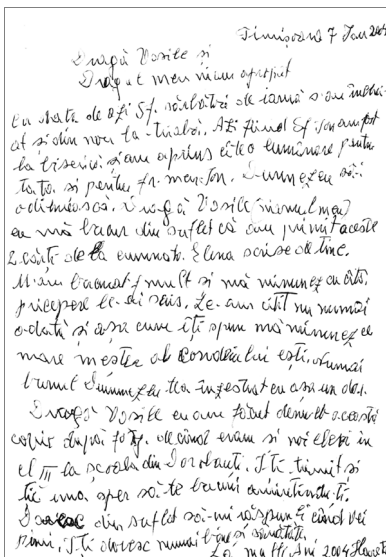 Timișoara 7 Ian 2004
Dragă Vasile și
Dragul meu neam apropiat
Cu data de azi Sf. sărbători de iarnă s-au încheiat
și din nou la treabă. Azi fiind Sf. Ion am fost
la biserică și am aprins câte o lumânare pentru
tata și pentru fr. meu Ion. Dumnezeu să-i
odihnească. Dragă Vasile (neamul meu)
eu mă bucur din suflet că am primit aceste
2 cărți de la cumnata Elena scrise de tine.
M-am bucurat f. mult și mă minunez cu câtă
pricepere le-ai scris. Le-am citit nu numai
odată și așa cum îți spun mă minunez ce
mare mester al condeiului ești, numai
bunul Dumnezeu te-a înzestrat cu așa un dar.
Dragă Vasile eu am făcut demult această
copie după foto. de când eram și noi elevi în
cl III la școala din Dorobanți. Ți-o trimit și
ție una, sper să-te bucuri amintindu-ți.
Doresc din suflet să-mi răspunzi când vei
primi. Îți doresc numai bine și sănătate.
La mulți ani 2004